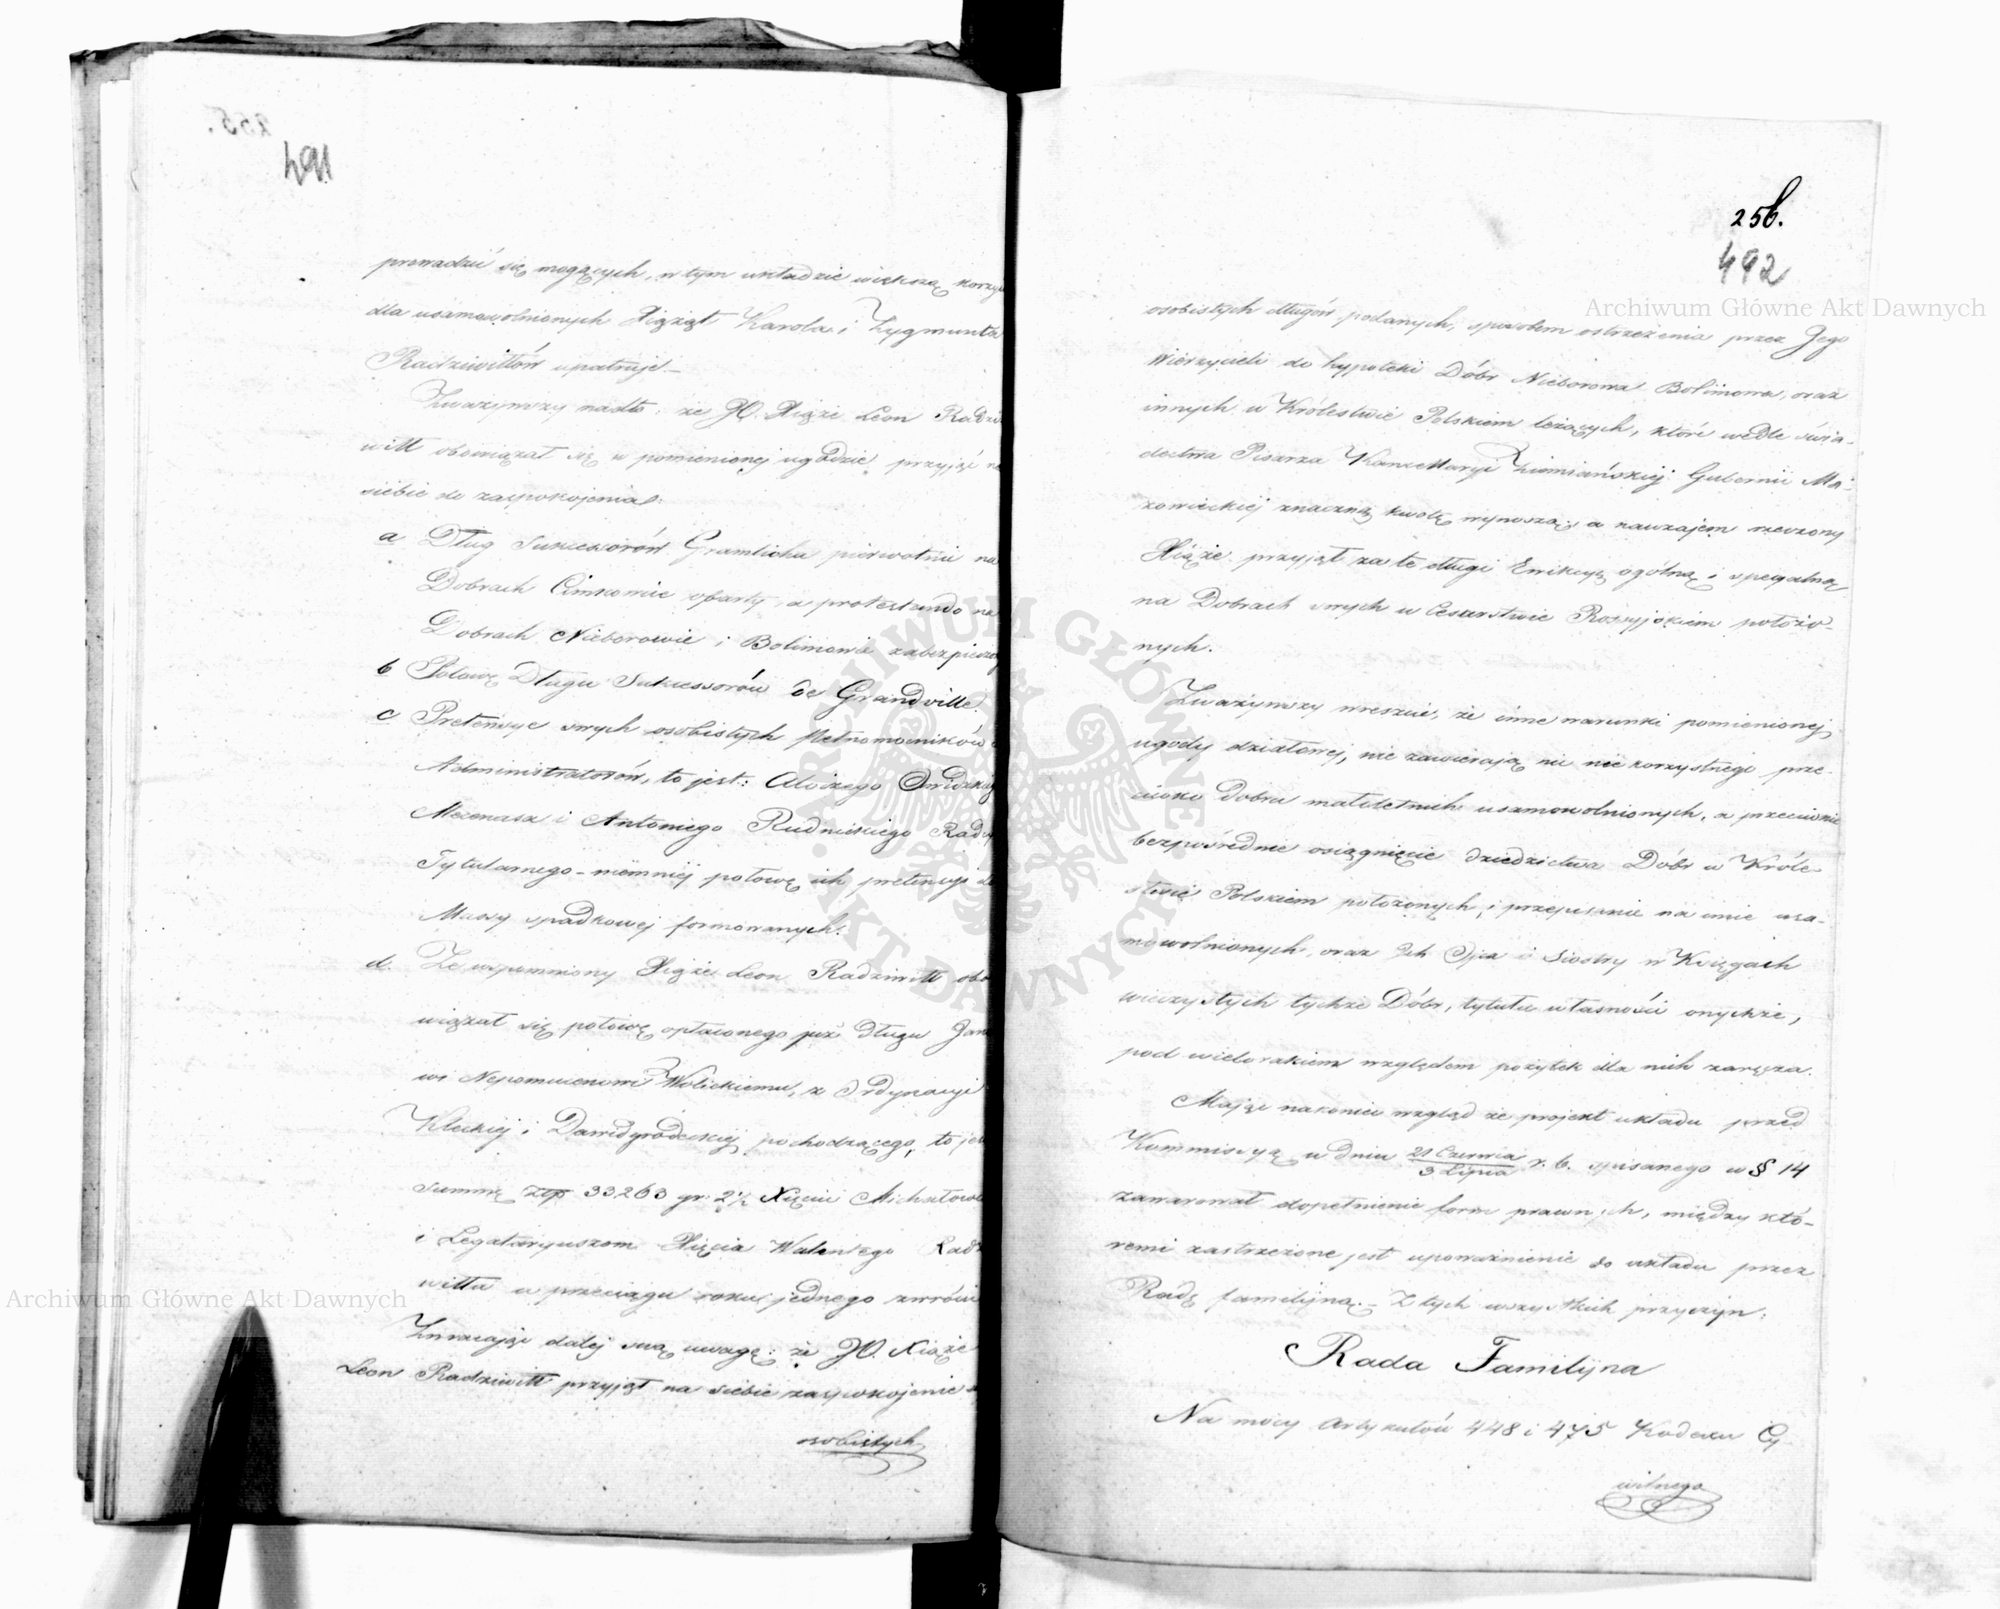 255.
491
prowadzić się mogących, w tym układzie większą korzyść
dla usamowolnionych Xiążąt Karola i Zygmunta
Radziwiłłów upatruje.
Zważywszy nadto: że JO. Xiąże Leon Radzi
wiłł obowiązał się w pomienionej ugodzie, przyjąć na
siebie do zaspokojenia:
a Dług Sukcessorów Gramlicha pierwotnie na
Dobrach Cimkowie oparty, a protestando na
Dobrach Nieborowie i Bolimowie zabezpieczony
b Połowę Długu Sukcessorów de Grandville.
c Pretensye swych osobistych Pełnomocników i
Administratorów, to jest: Aloizego
Mecenasa i Antoniego Rudnickiego Radcy
Tytularnego - niemniej połowę ich pretensyi do
Massy spadkowej formowanych.
d. Że wspomniony Xiąże Leon Radziwiłł obo
wiązał się połowę opłaconego już Długu Jano
wi Nepomucenowi Wolickiemu, z Ordynacyi
Kleckiej i Dawidgrodeckiej pochodzącego, to jest
summę złp 33263 gr: 2½ Xięciu Michałowi
i Legataryuszom Xięcia Walentego Radzi
wiłła w przeciągu roku jednego zwrócić
Zwracając dalej swą uwagę: że JO. Xiąże
Leon Radziwiłł przyjął na siebie zaspokojenie
osobistych
256.
492
osobistych długów podanych, sposobem ostrzeżenia przez Jego
Wierzycieli do hypoteki Dóbr Nieborowa Bolimowa, oraz
innych w Królestwie Polskiem leżących, które wedle świa-
dectwa Pisarza Kancellaryi Ziemiańskiej Gubernii Ma-
zowieckiej znaczną kwotę wynoszą, a nawzajem rzeczony
Xiąże przyjął za te długi Ewikcyą ogólną i specyalną
na Dobrach swych w Cesarstwie Rossyjskiem położo-
nych.
Zważywszy wreszcie, że inne warunki pomienionej
ugody działowej, nie zawierają nic niekorzystnego prze-
ciwko Dobru małoletnich usamowolnionych, a przeciwnie
bezpośrednie osiągnięcie dziedzictwa Dóbr w Króle-
stwie Polskiem położonych, i przepisanie na imie usa-
mowolnionych, oraz Ich Ojca i Siostry w Księgach
wieczystych tychże Dóbr, tytułu własności onychże,
pod wielorakiem względem pożytek dla nich zaręcza.
Mając nakoniec wzgląd że projekt układu przed
Kommissyą w dniu 21 Czerwca / 3 Lipca r. b. spisanego w § 14
zawarował dopełnienie form prawnych, między któ-
remi zastrzeżone jest upoważnienie do układu przez
Radę familijną. - Z tych wszystkich przyczyn:
Rada Familijna
Na mocy Artykułów 448 i 475 Kodexu Cy-
wilnego
Archiwum Główne Akt Dawnych
Archiwum Główne Akt Dawnych
ARCHIWUM GŁÓWNE AKT DAWNYCH